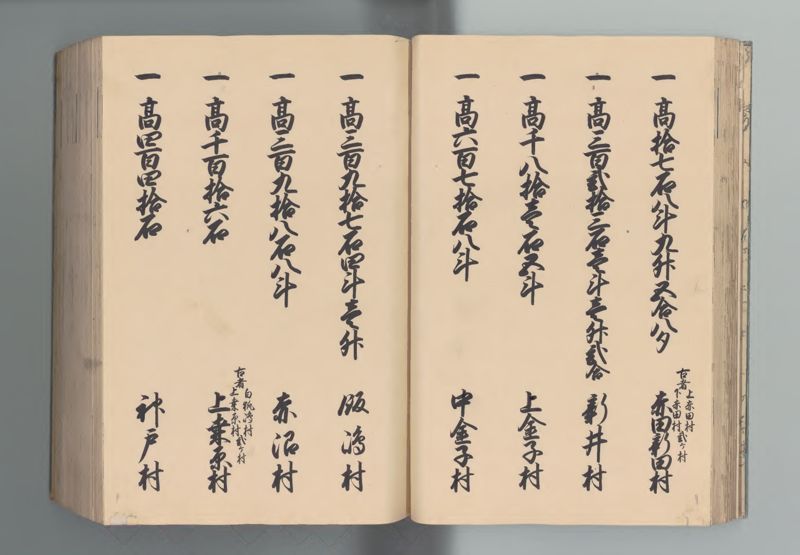 一 高拾七石八斗九升五合八夕
古者 上赤田村
下赤田村 弐ヶ村
赤田新田村
一 高三百弐拾三石壱斗壱升弐合
新井村
一 高千八拾壱石五斗
上金子村
一 高六百七拾石八斗
中金子村
一 高三百九拾七石四斗壱升
飯嶋村
一 高三百九拾八石八斗
赤沼村
一 高千百拾六石
古者 白狐嶋村
上葉原村 弐ヶ村
一 高四百四拾石
神戸村